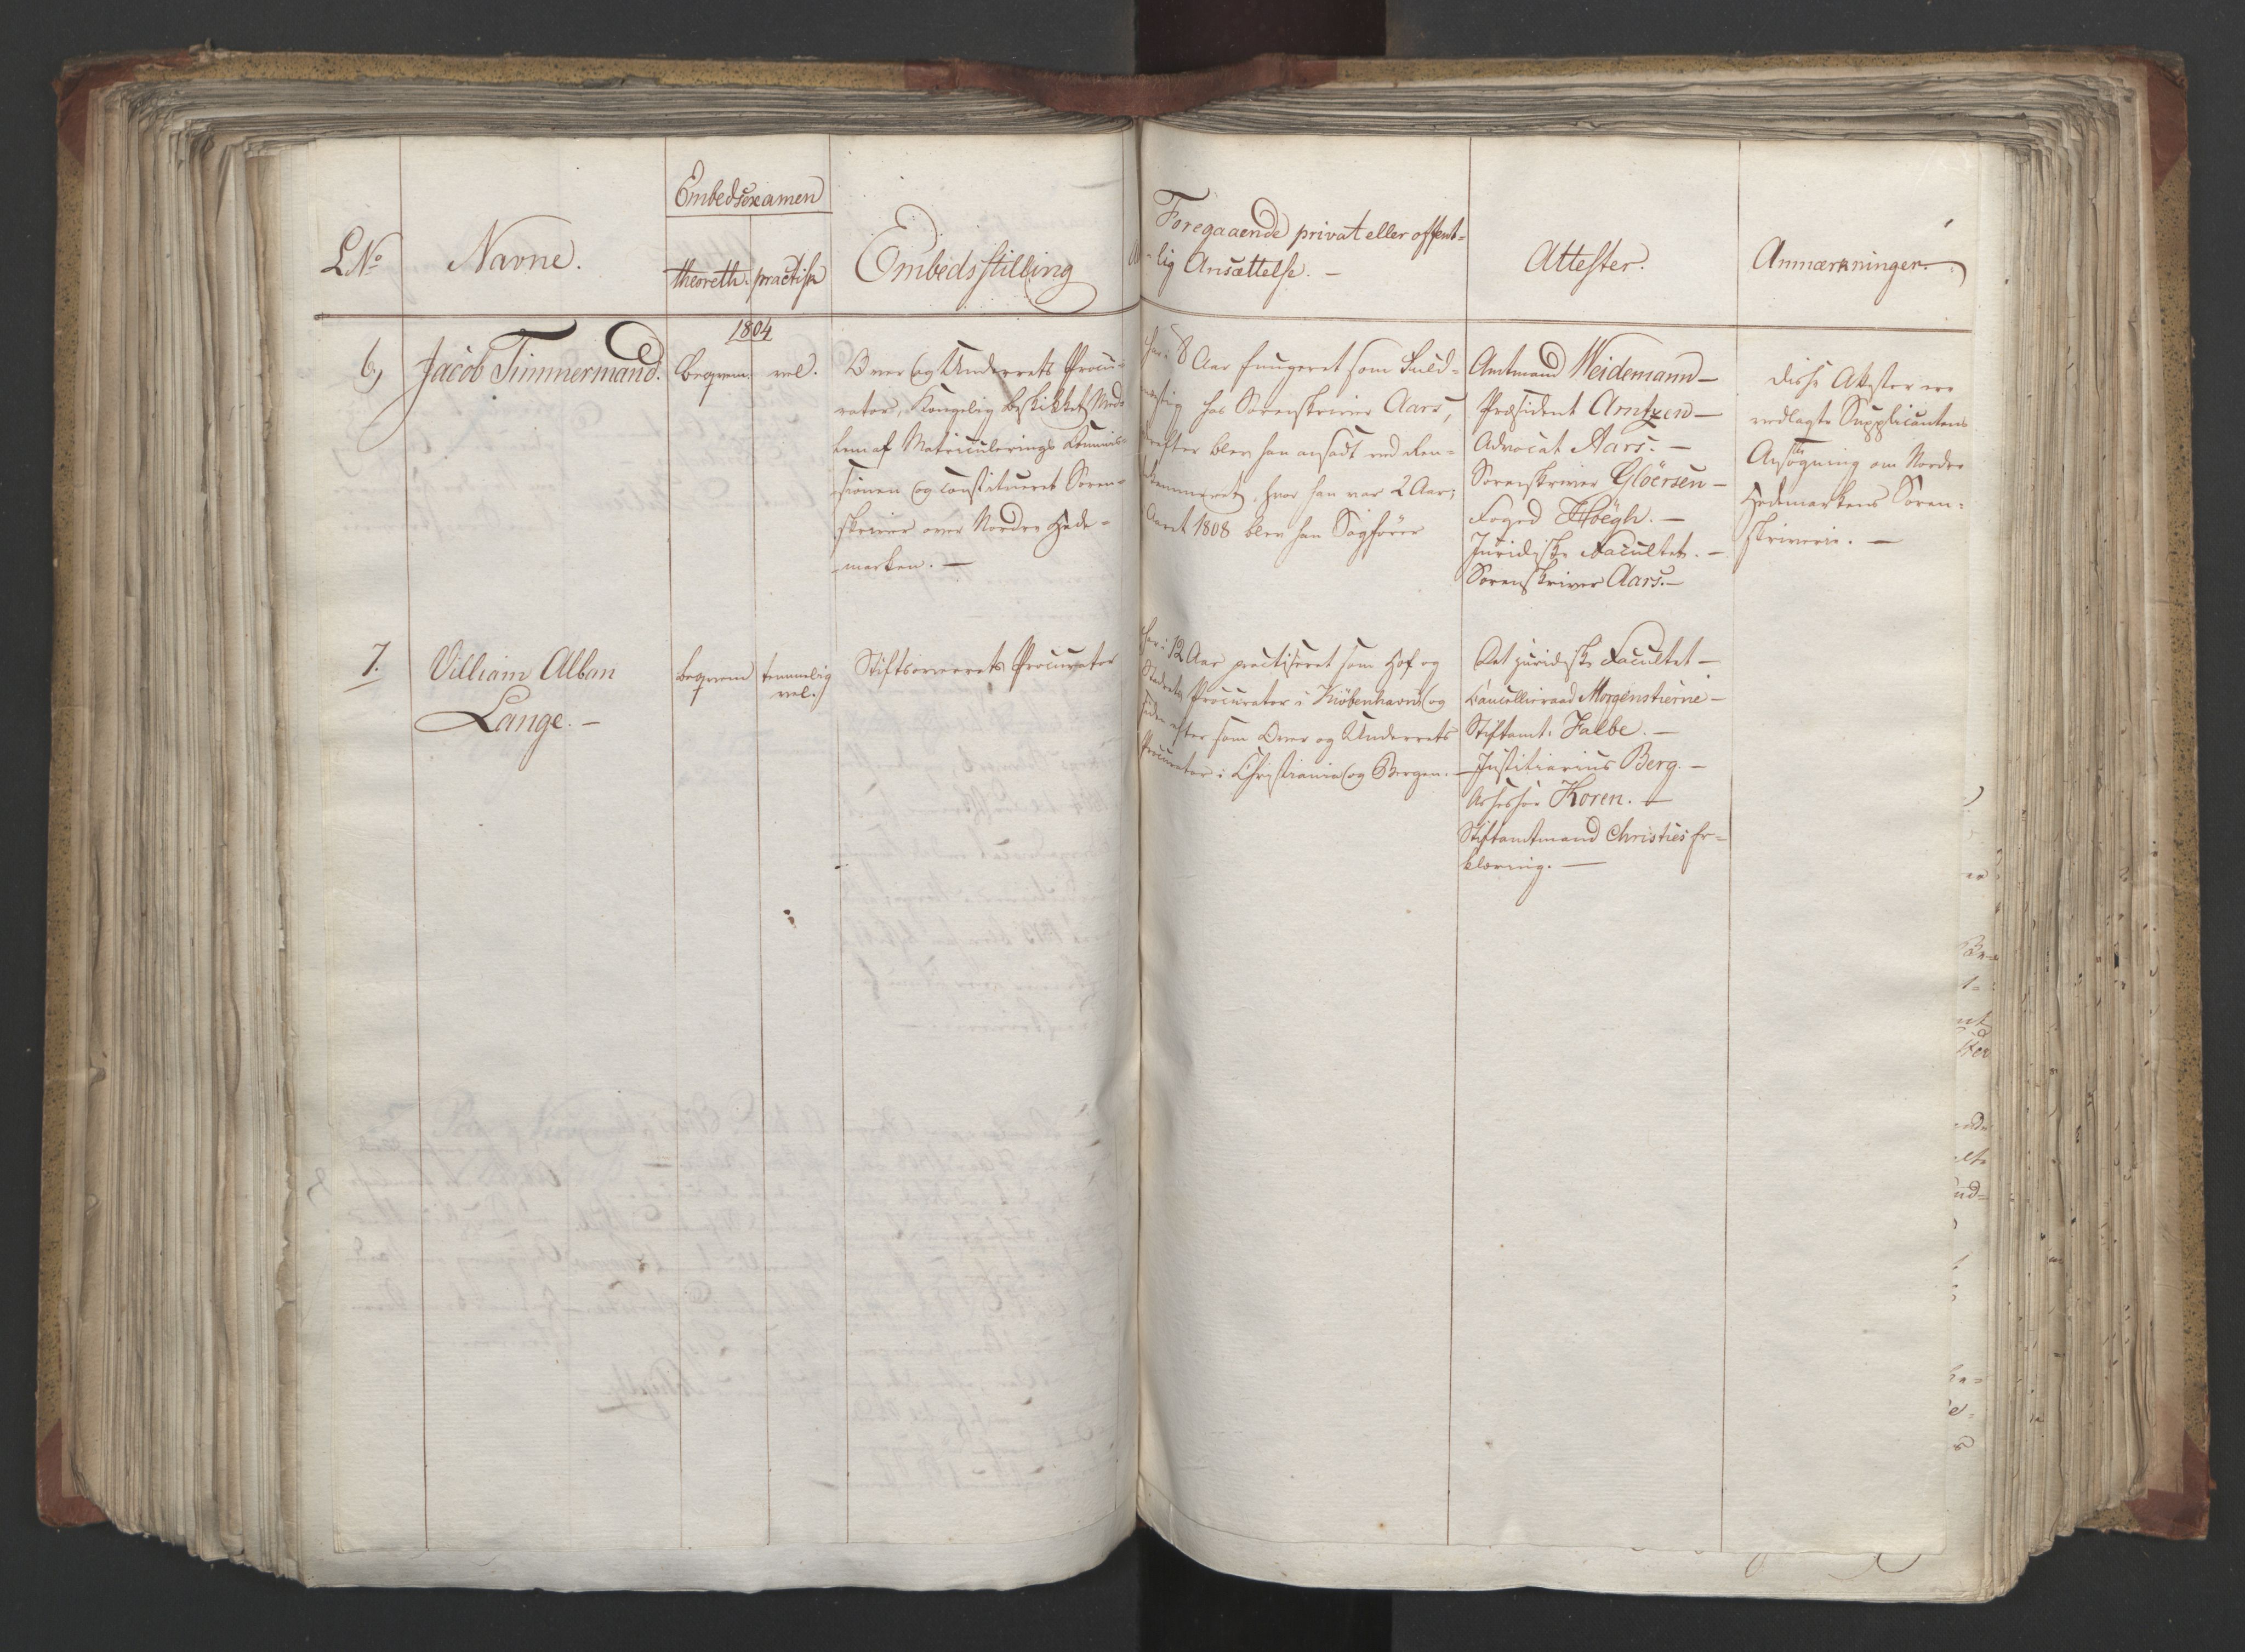 LNo
Navne.
Embedsexamen
theoreth. practisk
Embedsstilling
Foregaaende privat eller offent-
lig Ansættelse. -
Attester.
Anmærkninger.
6,
Jacob Timmermand.
1804
beqvem. vel.
Over og Underrets Procu-
rator, Kongelig beskikket Med-
lem af Matriculerings Commis-
sionen og constitueret Soren-
skriver over Nordre Hede-
marken. -
har i 8 Aar fungeret som Fuld-
mægtig hos Sorenskriver Aars,
derefter blev han ansadt ved Ren-
tekammeret, hvor han var 2 Aar;
Aaret 1808 blev han Sagfører
Amtmand Weidemann -
Præsident Arntzen -
Advocat Aars. -
Sorenskriver Gloërsen -
Foged Høegh. -
Juridiske Facultet. -
Sorenskriver Aars. -
disse Attester ere
vedlagte Supplicantens
Ansøgning om Nordre
Hedemarkens Soren-
skriverie. -
7.
Villiam Alban
Lange. -
beqvem
temmelig
vel.
Stiftsoverrets Procurator
har i 12 Aar practiseret som Hof og
Stadsrets Procurator i Kiöbenhavn og
siden efter som Over og Underrets
Procurator i Christiania og Bergen. -
Det juridiske Facultet -
Cancelliraad Morgenstierne -
Stiftamt. Falbe. -
Justitiarius Berg. -
Assessor Koren. -
Stiftamtmand Christies Er-
klæring. -